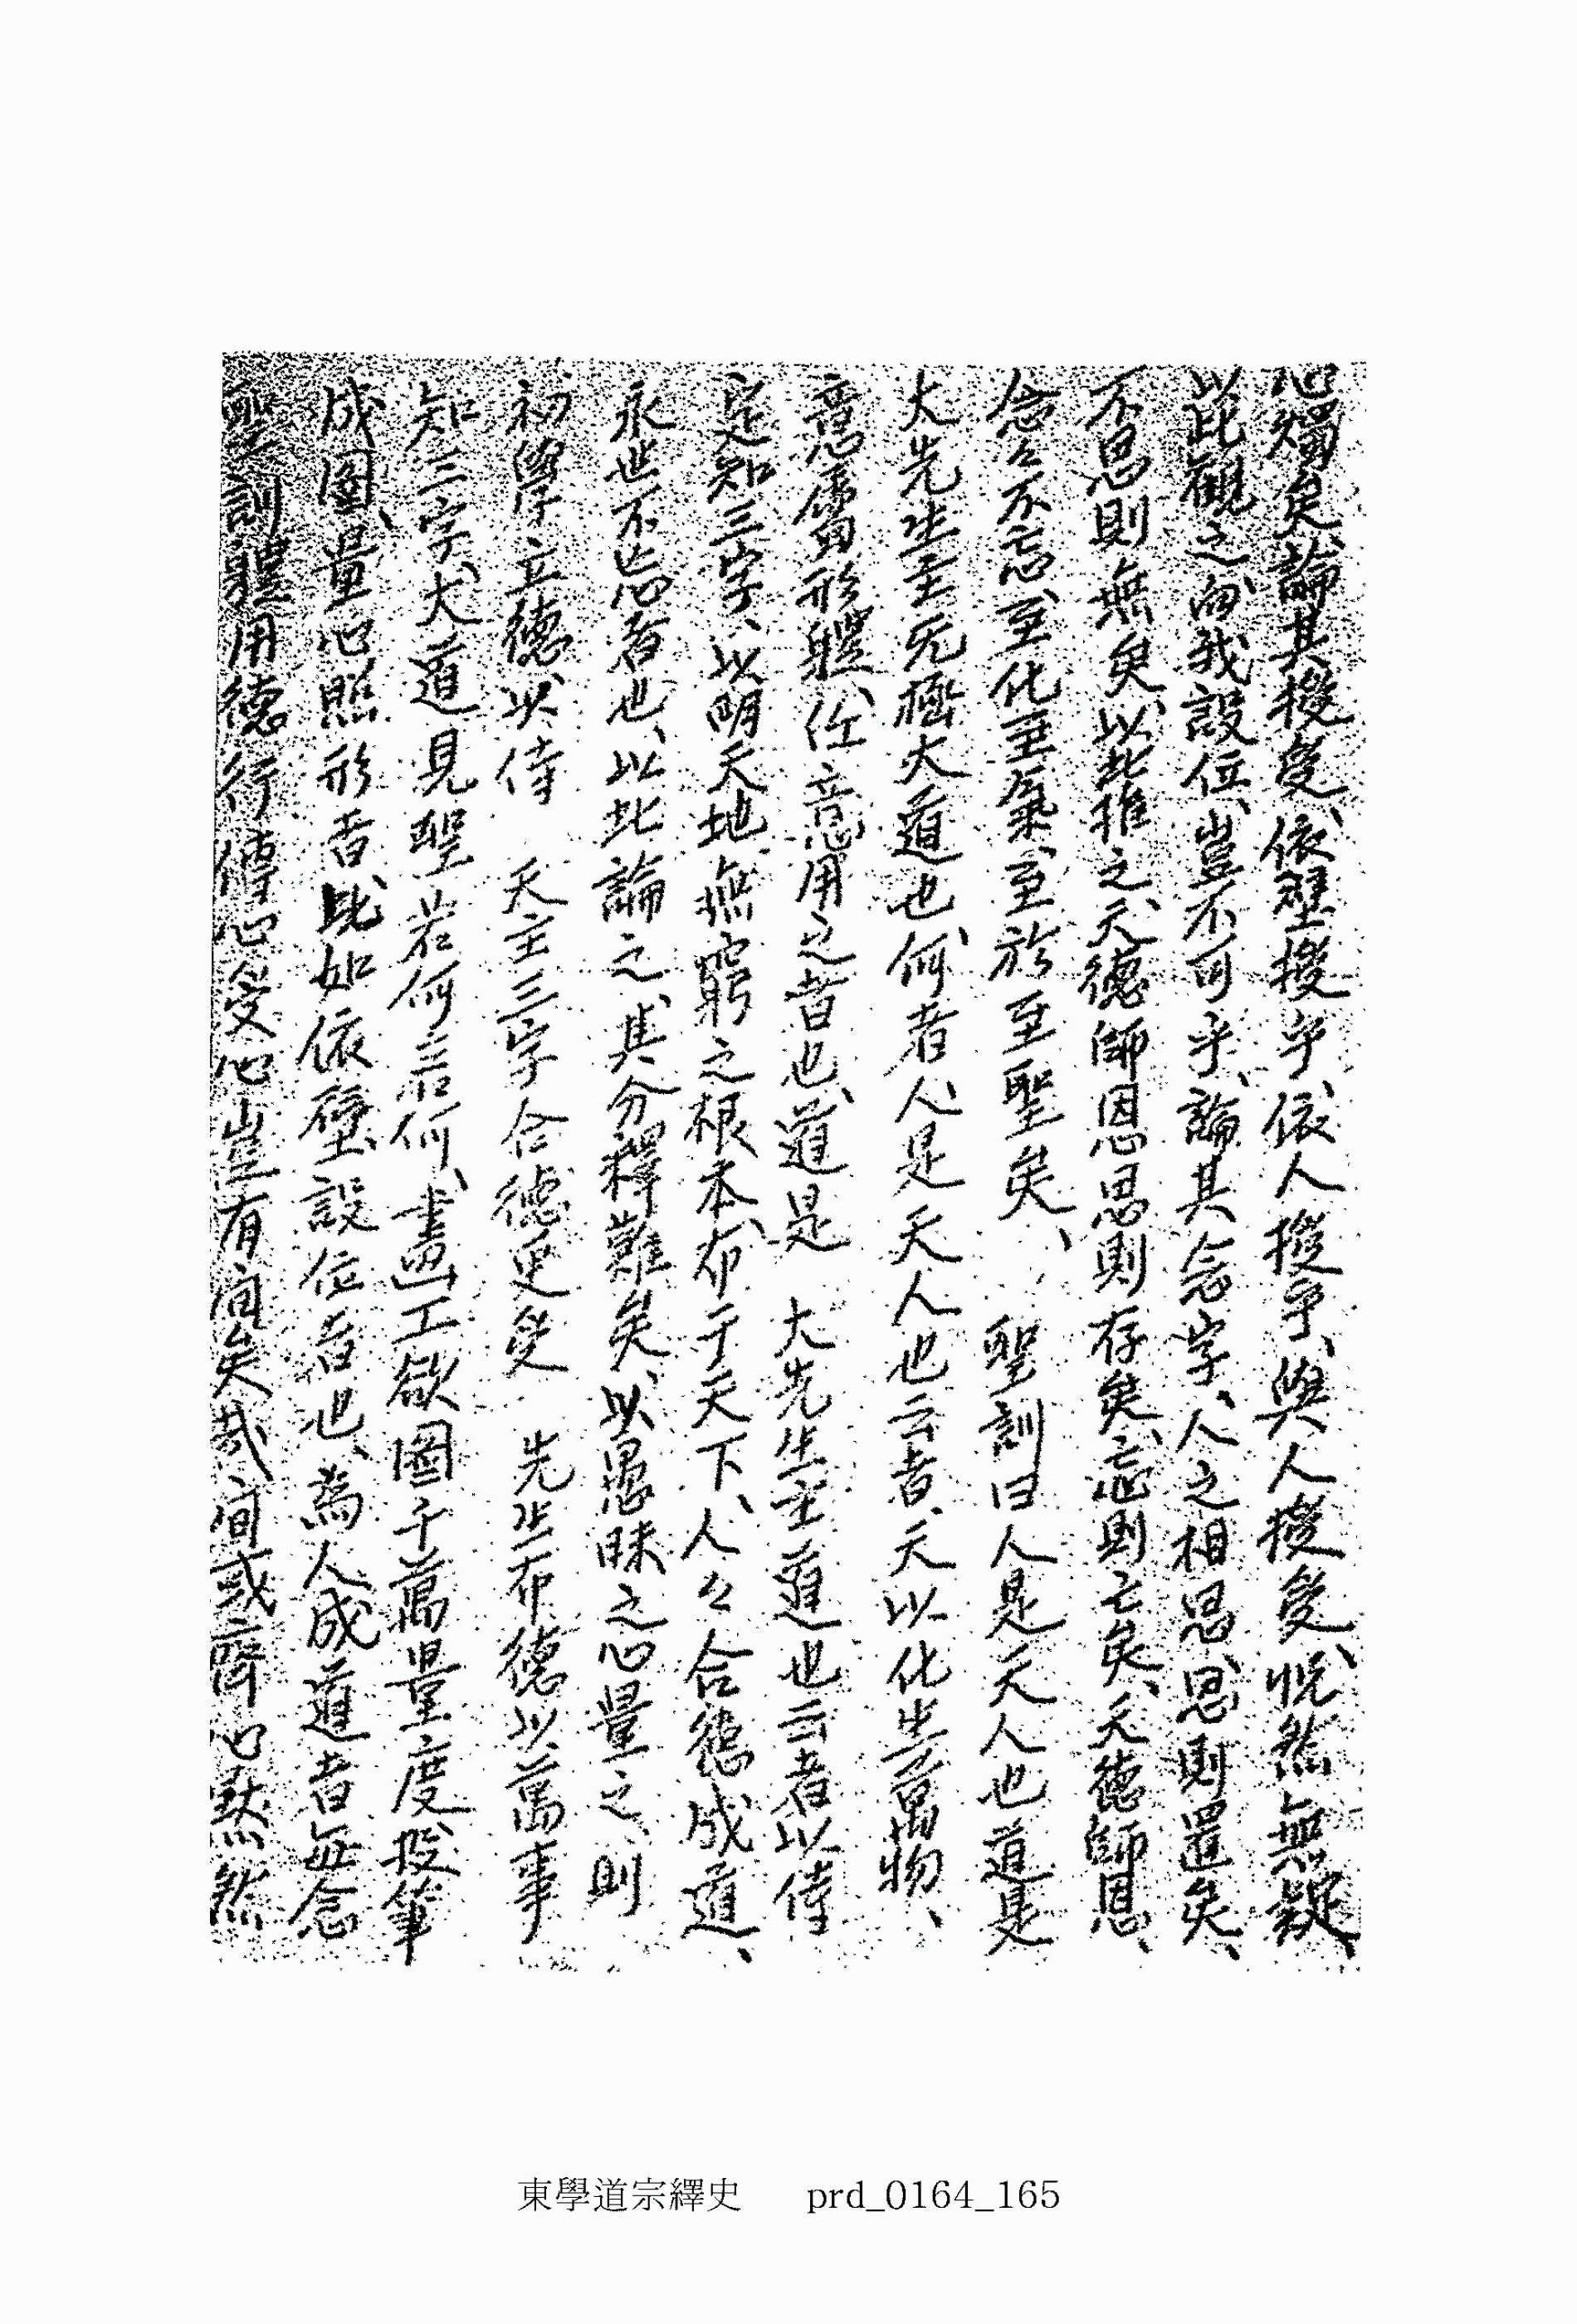 心燭矣、論其授受、依壁授乎、依人授乎、與人授受、恍然無疑、
以此觀之、向我設位、豈不可乎、論其念字、人之相思、思則置矣、
不思則無矣、以此推之、天德師恩思則存矣、忘則亡矣、天德師恩、
念々不忘、至化至氣、至於至聖矣、 聖訓曰人是天人也道是
大先生主无極大道也、何者、人是天人也云者、天以化生萬物、
意屬形體、任意用之者也、道是 大先生主道也云者、以侍
定知三字、以明天地無窮之根本、布于天下、人々合德成道、
永世不忘者也、以此論之、其分釋難矣、以愚昧之心量之、則
初學立德、以侍 天主三字合德更受 先生布德以萬事
知三字、大道見聖若何若何、畵工欲圖千萬量度、投筆
成圖、量心照形者、比如依壁設位者也、為人成道者每念
聖訓體用德行傳心受心豈有间矣哉间或廢心默然